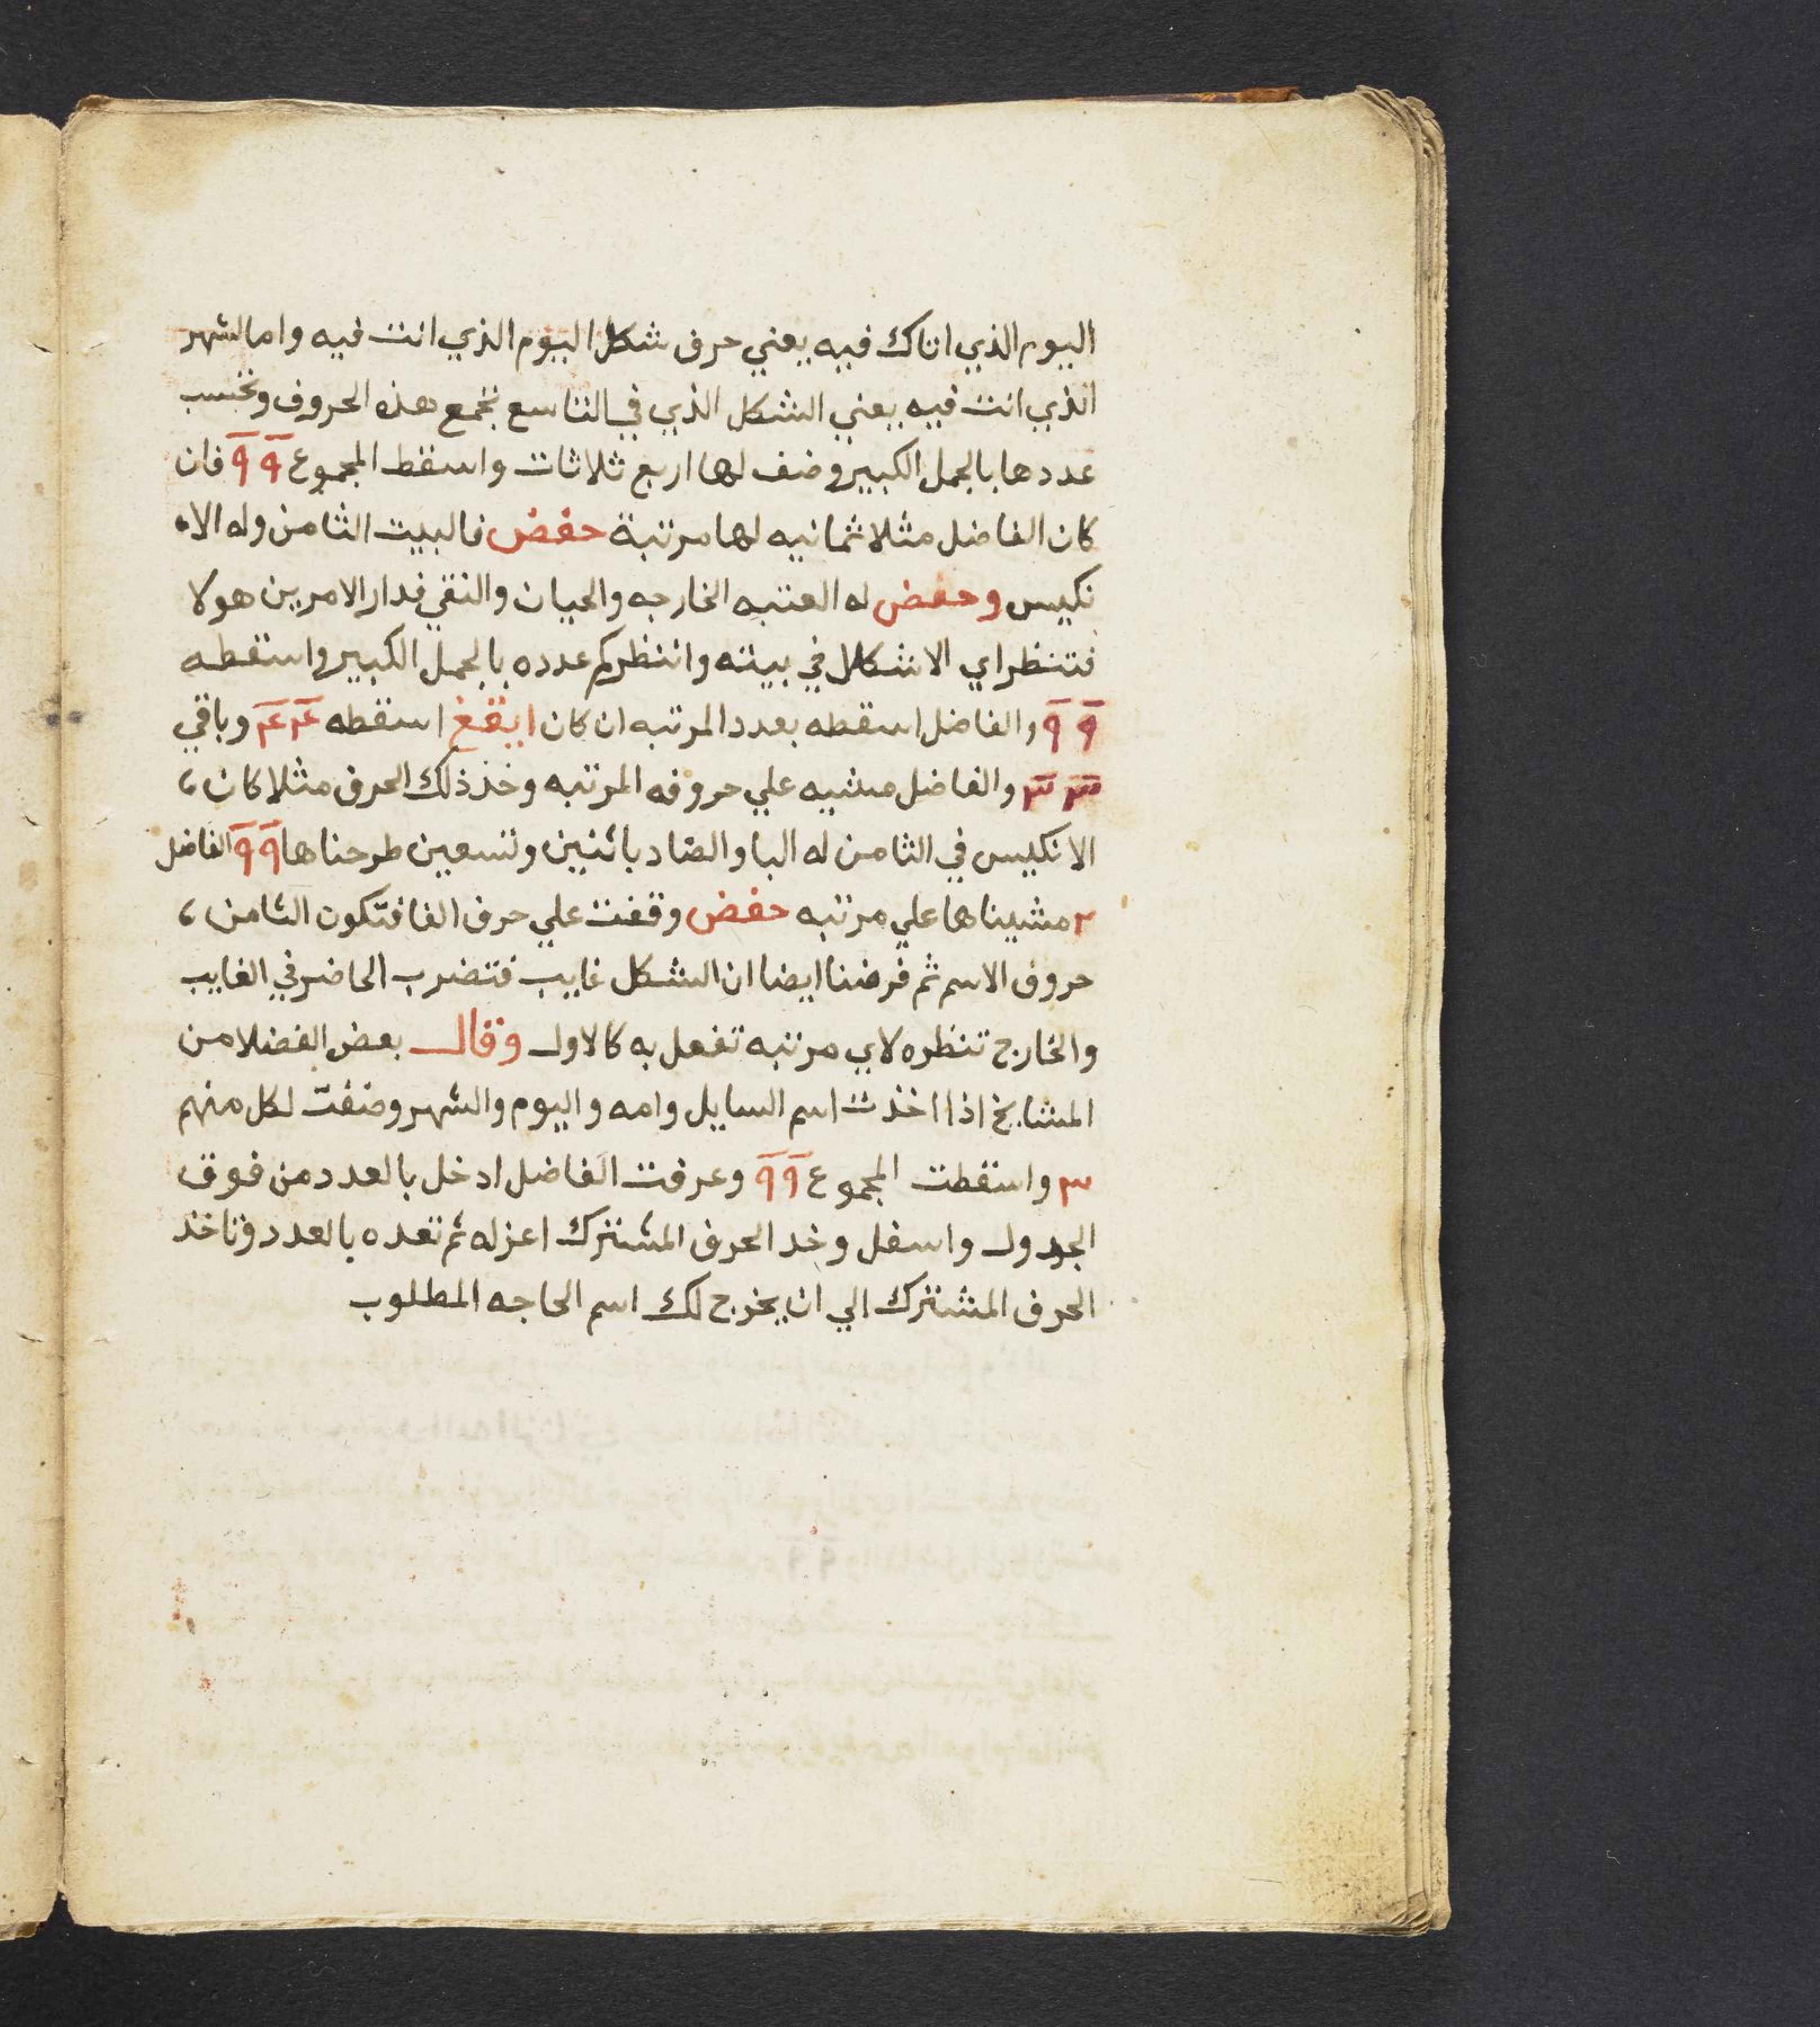 اليوم الذي اتاك فيه يعني حرف شكل اليوم الذي انت فيه وامالشهر
الذي انت فيه يعني الشكل الذي في التاسع تجمع هذه الحروف وتحسب
عددها بالجمل الكبير وضف لها اربع ثلاثات واسقط المجموع ٩ ٩ فان
كان الفاضل مثلا ثمانيه لها مرتبة حفض فالبيت الثامن وله الا
نكيس وحفض له العتبه الخارجه والحيان والنقي فدار الامر بين هولا
فتنظر اي الاشكال في بيته وانتظركم عدده بالجمل الكبير واسقطه
٩ ٩ والفاضل اسقطه بعدد المرتبه ان كان ايقغ اسقطه ع٤ ع٤ وباقي
٣ ٣ والفاضل مشيه علي حروفه المرتبه وخذ ذلك الحرف مثلا كان،
الانكيس في الثامن له البا والصاد باثنين وتسعين طرحناها ٩ ٩ الفاضل
٢ مشيناها علي مرتبه حفض وقفت علي حرف الفا فتكون الثامن،
حروف الاسم ثم فرضنا ايضا ان الشكل غايب فتضرب الحاضر في الغايب
والخارج تنظره لاي مرتبه تفعل به كالاول وقال بعض الفضلا من
المشايخ اذا اخذت اسم السايل وامه واليوم والشهر وضفت لكل منهم
٣ واسقطت المجموع ٩ ٩ وعرفت الفاضل ادخل بالعدد من فوق
الجدول واسفل وخد الحرف المشترك اعزله ثم تعده بالعدد وتاخذ
الحرف المشترك الي ان يخرج لك اسم الحاجه المطلوب